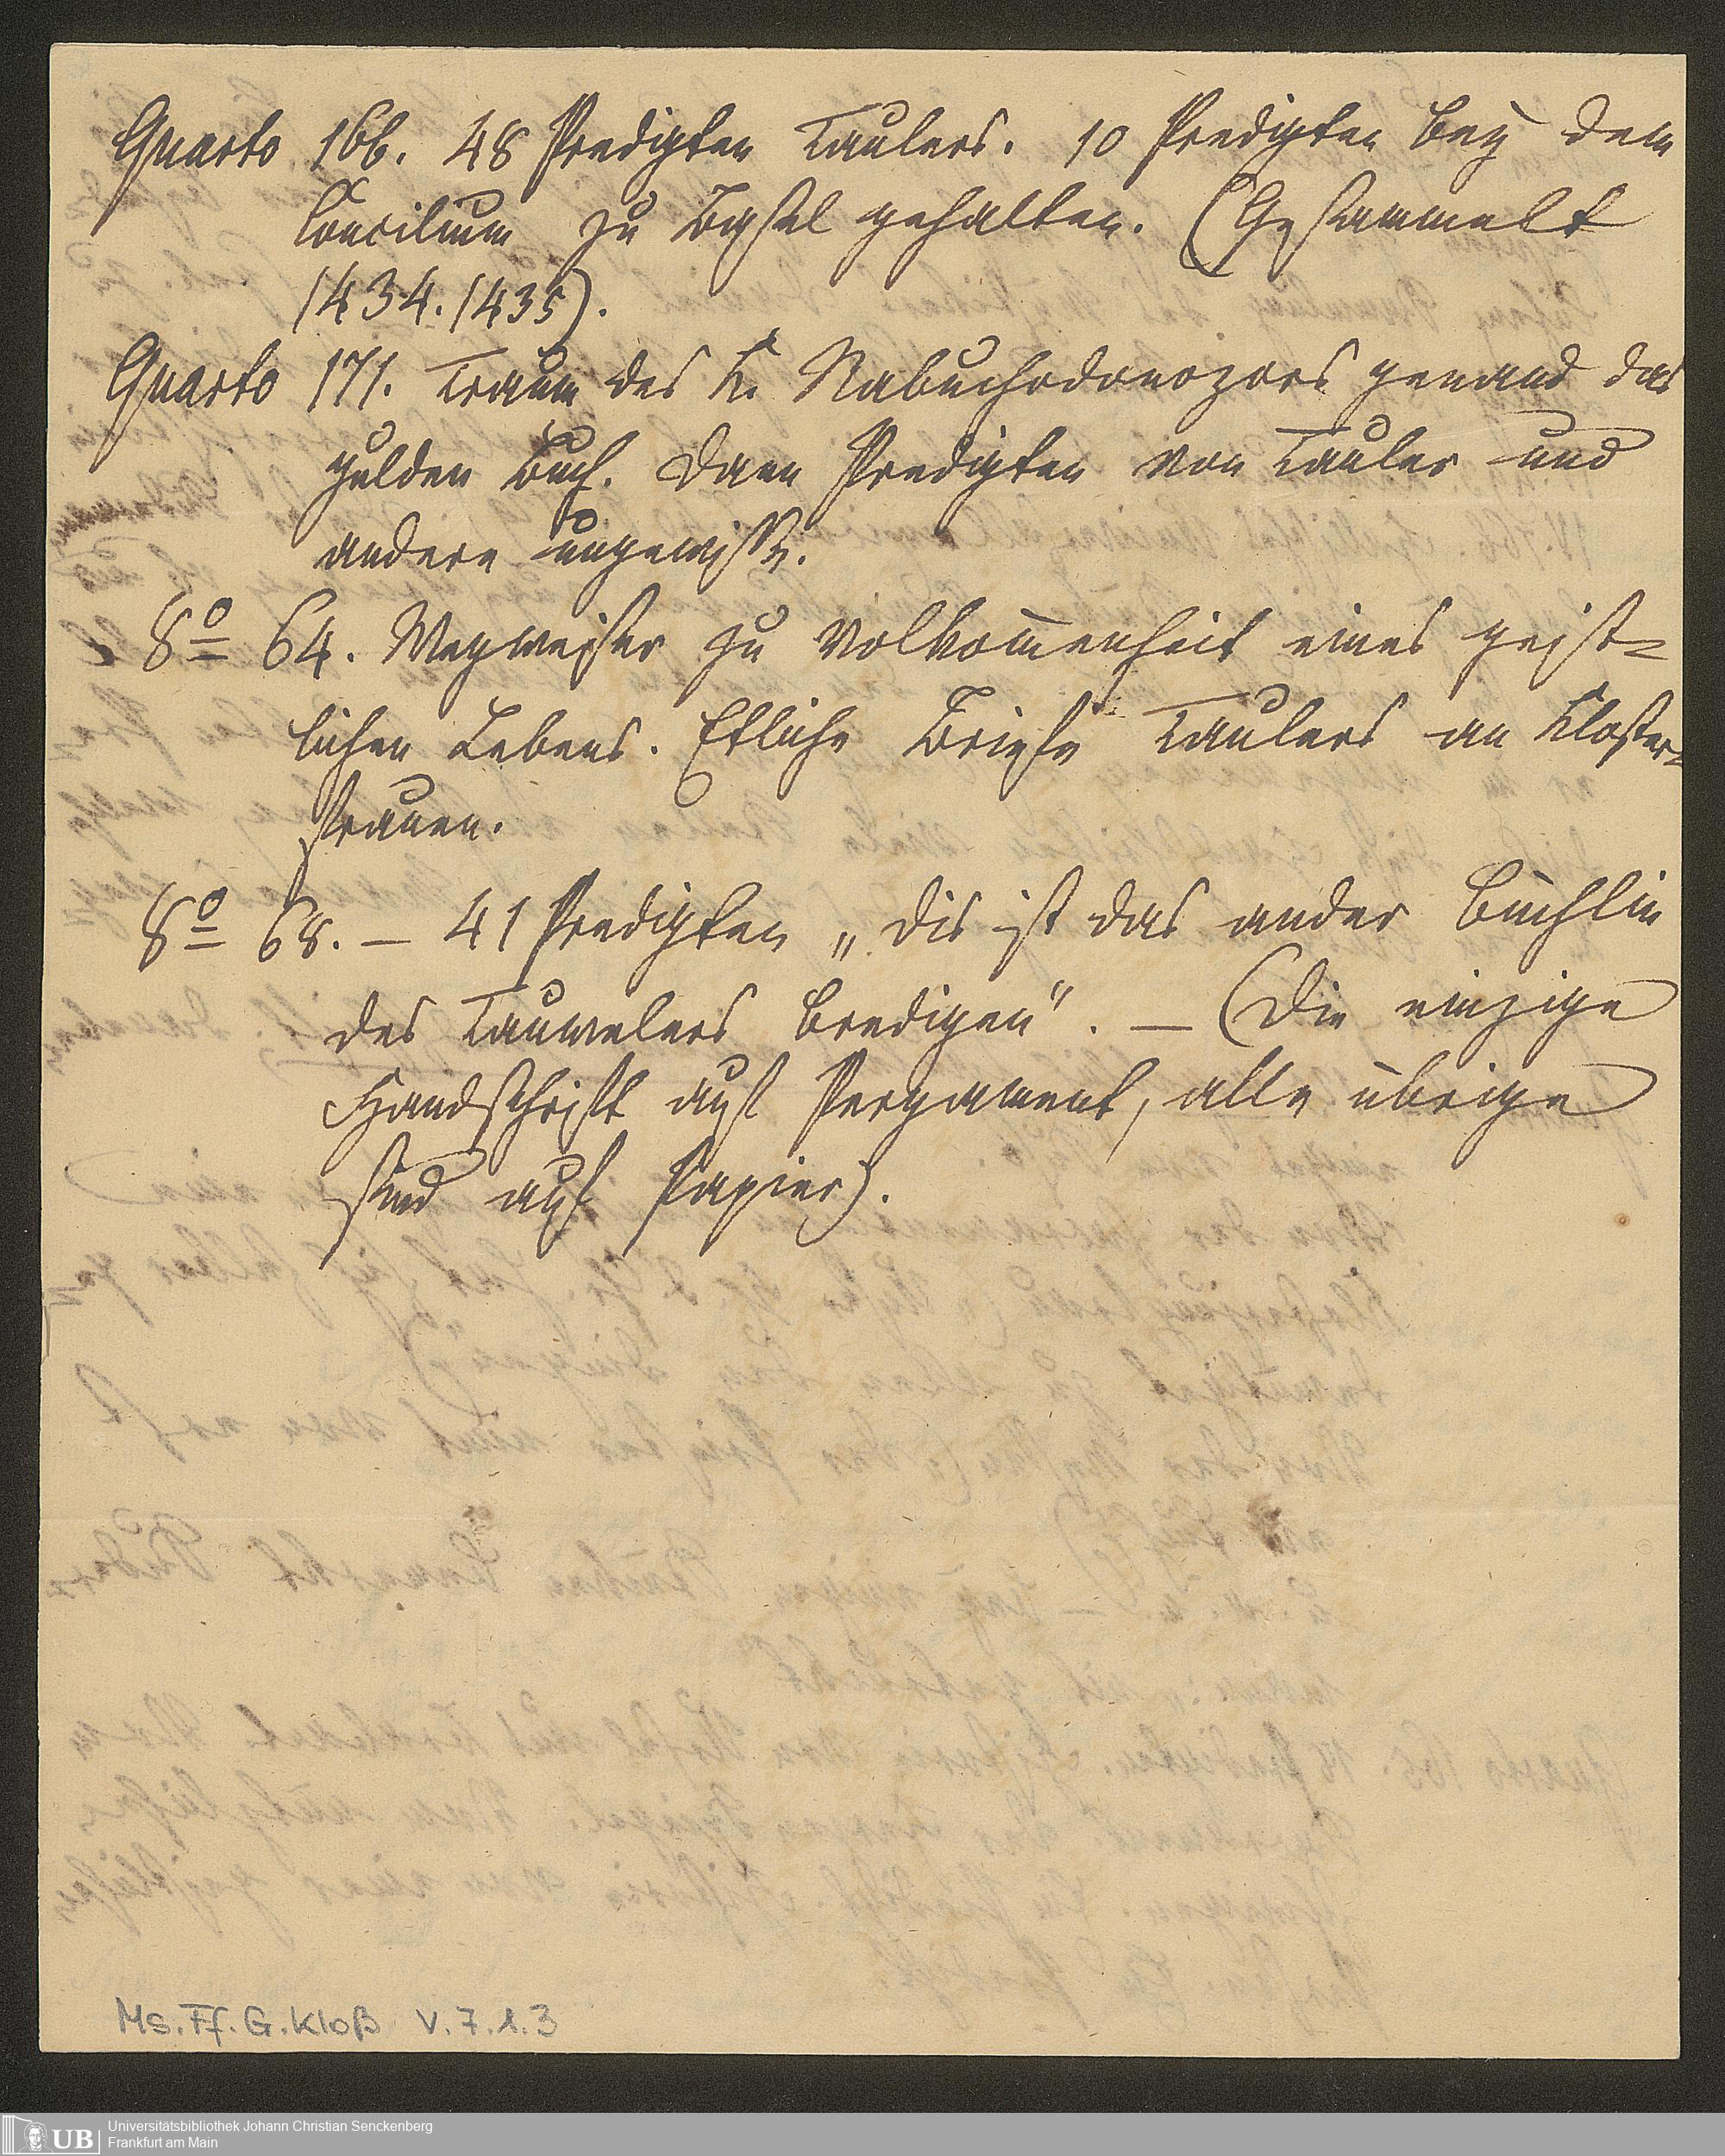 Quarto 166. 48 Predigten Taulers. 10 Predigten bey dem
Concilium zu Basel gehalten. (Gesammelt
1434.1435).
Quarto 171. Traum des K. Nabuchodonozors genand das
gulden Buch. Dann Predigten von Tauler und
andere ungewisse.
8o 64. Wegweiser zu volkom̄enheit eines geist=
lichen Lebens. Etliche Briefe Taulers an Kloster=
frauen.
8o 68. — 41 Predigten „dis ist das ander Büchlin
des Tauwelers bredigen“. — (Die einzige
Handschrift auf Pergament, alle übrige
sind auf Papier).
Ms. Ff. G. Kloß V. 7. 1. 3
UB Universitätsbibliothek Johann Christian Senckenberg
Frankfurt am Main